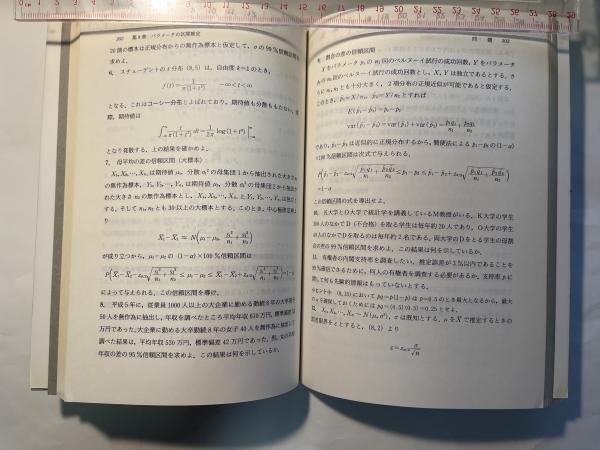 202 第8章 パラメータの区間推定
20個の標本は正規分布からの無作為標本と仮定して,σの99%信頼区間を
求めよ.
6. スチューデントのt分布 (8,5) は,自由度k=1のとき,
f(t)=1/π(1+t²) -∞<t<∞
となる.これはコーシー分布とよばれており,期待値も分散ももたない.実
際,期待値は
∫ t/π(1+t²) dt = 1/2π log(1+t²)
となり発散する.上の結果を確かめよ.
7. 母平均の差の信頼区間(大標本)
X₁, X₂, …, Xₙ₁ は期待値μ₁,分散σ₁²の母集団1から抽出された大きさn₁
の無作為標本,Y₁, Y₂, … は期待値μ₂,分散σ₂²の母集団2から抽出さ
れた大きさn₂の無作為標本とし,
する.そしてn₁, n₂とも30以上の大標本とする.このとき,中心極限定理よ
り
X̄₁-X̄₂ ≈ N(μ₁-μ₂, σ₁²/n₁ + σ₂²/n₂)
が成り立つから,μ₁-μ₂の(1-α)×100%信頼区間は
によって与えられる.この信頼区間を導け.
8. 平成5年に,従業員1000人以上の大企業に勤める勤続8年の大卒男子
50人を無作為に抽出し,年収を調べたところ平均年収610万円,標準偏差
万円であった.大企業に勤める大卒勤続8年の女子40人を無作為に抽出して
調べた結果は,平均年収530万円,標準偏差42万円であった.男,女の平均
年収の差の95%信頼区間を求めよ.この結果は何を示しているか.
問題 203
9. 割合の差の信頼区間
Xをパラメータp₁のn₁回のベルヌーイ試行の成功回数,Yをパラメータ
p₂のn₂回のベルヌーイ試行の成功回数とし,X, Yは独立であるとする.さ
らにn₁, n₂とも十分大きく,2項分布の正規近似が可能であると仮定する.
このとき,p̂₁=X/n₁, p̂₂=Y/n₂とすれば
E(p̂₁-p̂₂)=p₁-p₂
var(p̂₁-p̂₂)=var(p̂₁)+var(p̂₂)= p₁q₁/n₁ + p₂q₂/n₂
であり,p̂₁-p̂₂は近似的に正規分布するから,簡便法によるp₁-p₂の(1-α)
×100%信頼区間は次式で与えられる.
=1-α
この信頼区間の式を導出せよ.
10. K大学とO大学で統計学を講義しているM教授がいる.K大学の学生
100人のなかでD(不合格)を取る学生は毎年約20人であり,O大学の学生
人のなかでDを取るのは毎年約2名である.両大学のDをとる学生の母割
合の差の99%信頼区間を求めよ.この結果は何を示しているか.
11. 有権者の内閣支持率を調査したい.推定誤差が3%以内であることを
%確信できるために,何人の有権者を調査する必要があるか.支持率pに
関して何も先験的情報はもっていないとする.
ヒント:(8,15)においてpq=p(1-p)はp=0.5のとき最大となるから,最大
のnを確保しておくためにはpq=(0.5)(0.5)=0.25とせよ.
12. X₁, X₂, …, Xₙ ~ N(μ, σ²),σは既知とする.μをX̄で推定するときの
誤差限界をεとすると,(8,2)より
ε=zα/2 σ/√n